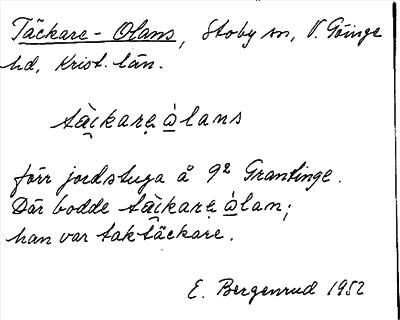 Täckare-Olans, Stoby sn, V. Göinge
hd, Krist. län.
täckare òlans
förr jordstuga å 9² Grantinge.
Där bodde täckare òlan;
han var taktäckare.
E. Bergenrud 1952